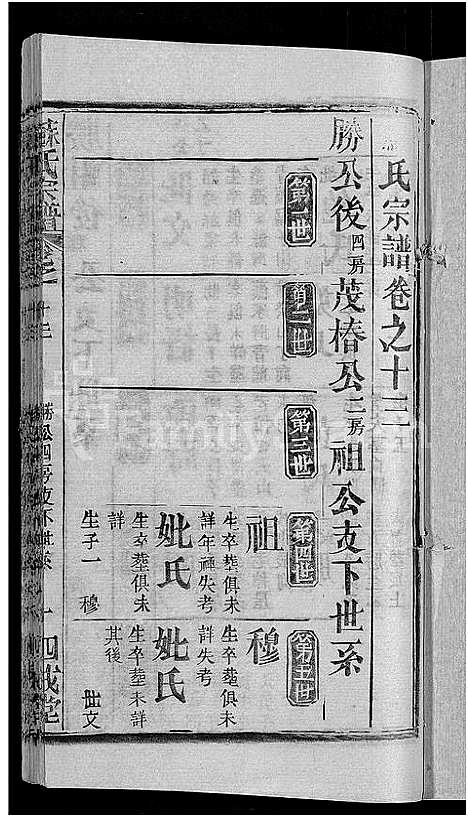 氏宗譜卷之十三
勝公後四房茂椿公二房祖公支下世系
第一世
第二世
第三世
第四世
第五世
祖
生卒塟俱未
詳年禋失考
妣氏
生卒塟俱未
詳
生子一 穆
穆
生卒塟俱未
詳失考
妣氏
生卒塟未詳
其後
世文
蘇氏宗譜
卷之十三
勝公四房支下世系